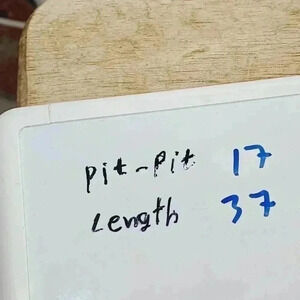 Pit-Pit 17
Length 37